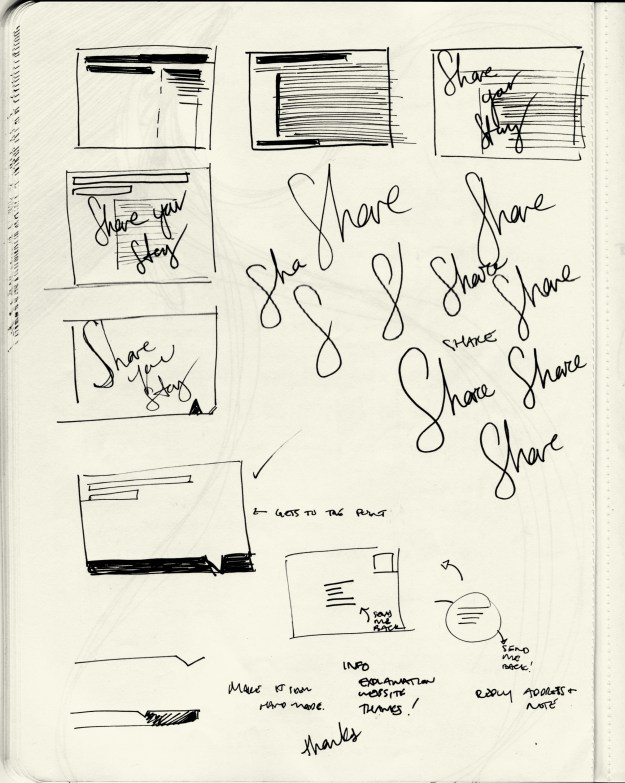 Share
your
Stay
Share your
Stay
Share
your
Stay
Share
Share
Sha
S
S
Share
Share
SHARE
Share
Share
Share
← GETS TO THE POINT
SEND
ME
BACK
SEND
ME
BACK!
INFO
EXPLANATION
WEBSITE
THANKS!
MAKE IT
HAND MADE.
REPLY ADDRESS +
NOTE
thanks